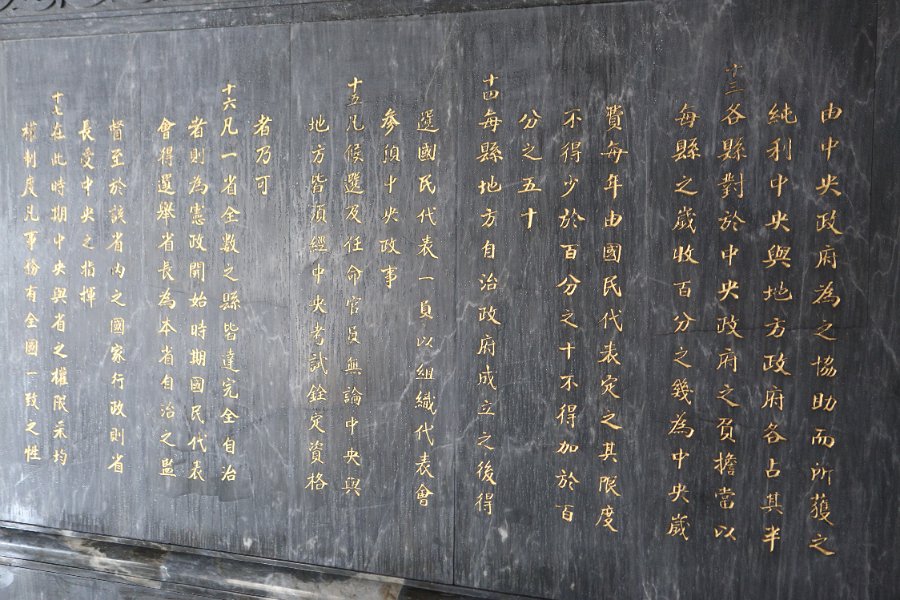 由中央政府為之協助而所獲之
純利中央與地方政府各占其半
十三各縣對於中央政府之負擔當以
每縣之歲收百分之幾為中央歲
費每年由國民代表定之其限度
不得少於百分之十不得加於百
分之五十
十四每縣地方自治政府成立之後得
選國民代表一員以組織代表會
參預中央政事
十五凡候選及任命官員無論中央與
地方皆須經中央考試銓定資格
者乃可
十六凡一省全數之縣皆達完全自治
者則為憲政開始時期國民代表
會得選舉省長為本省自治之監
督至於該省內之國家行政則省
長受中央之指揮
十七在此時期中央與省之權限采均
權制度凡事務有全國一致之性